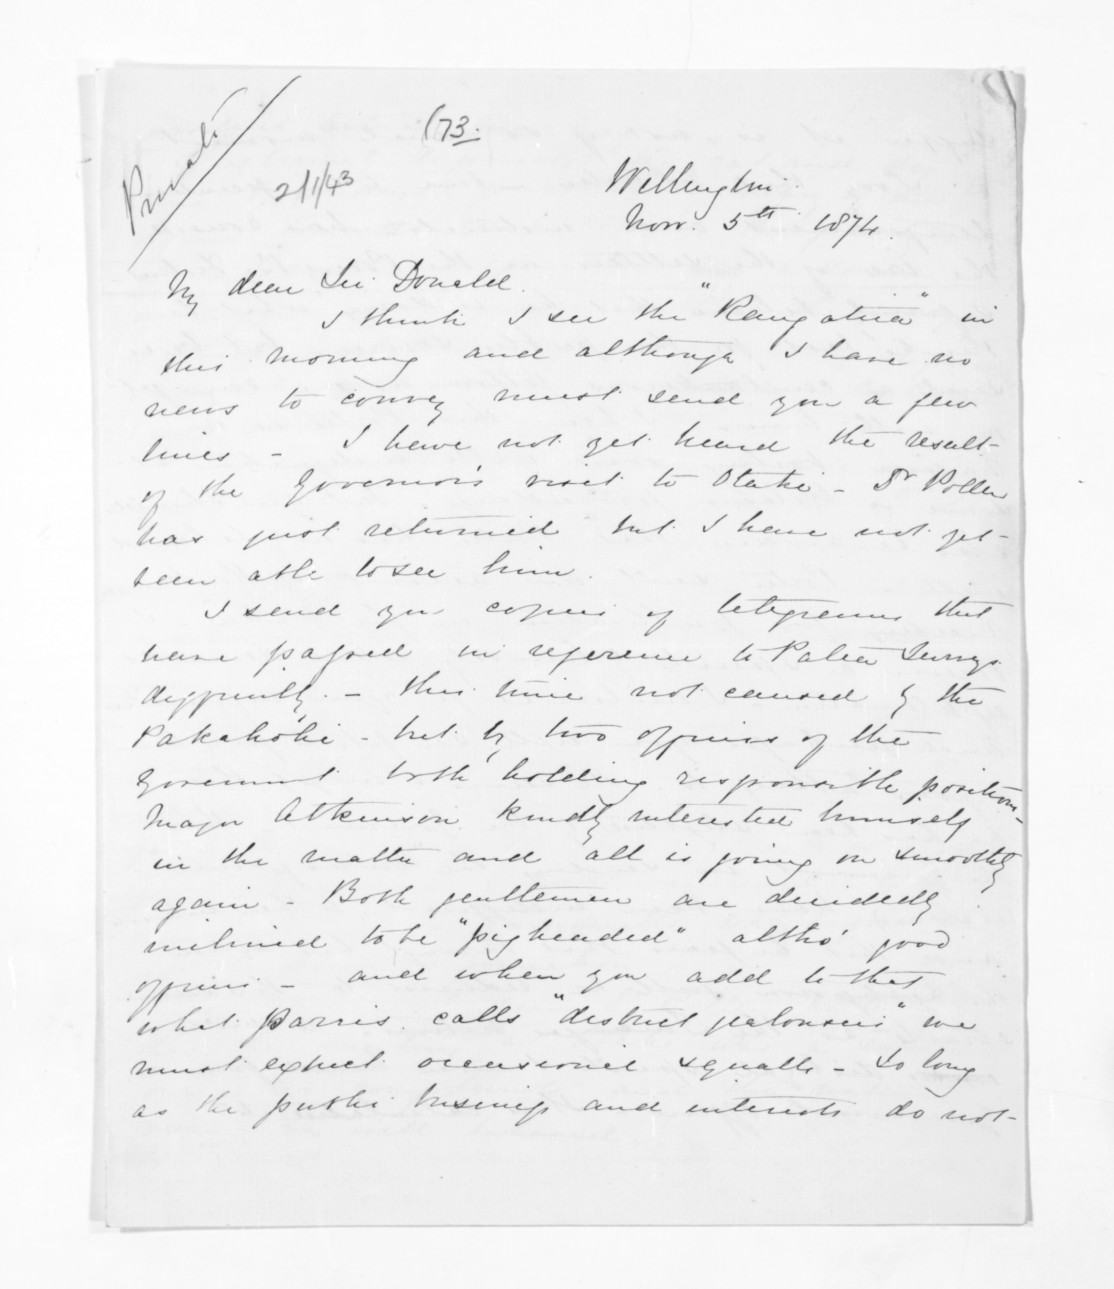 Private
(73.
2/1/43
Wellington.
Nov. 5th 1874.
My dear Sir Donald.
I think I see the "Rangatira" in
this morning and although I have no
news to convey must send you a few
lines - I have not yet heard the result
of the Governor's visit to Otaki - Dr Pollen
has just returned but I have not yet
been able to see him.
I send you copies of telegrams that
have passed in reference to Patea Survey
difficulty. - this time not caused by the
Pakakohi - but by two officers of the
Government both holding responsible positions -
Major Atkinson kindly interested himself
in the matter and all is going on smoothly
again - Both gentlemen are decidedly
inclined to be "pigheaded" altho' good
officers - and when you add to that
what Parris calls "district jealousies" we
must expect occasional squalls - so long
as the public business and interests do not